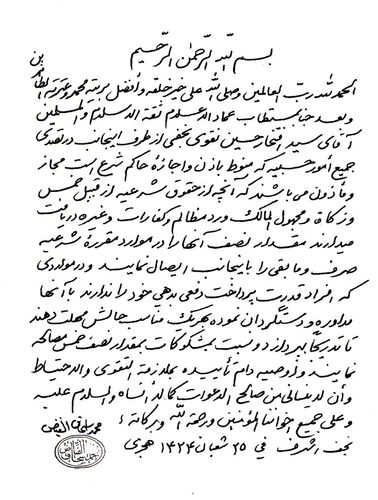 بسم الله الرحمٰن الرحیم
الحمد لله رب العالمین وصلی الله علی خیر خلقه وأفضل بریته محمد وعترته الطاهرین
وبعد جناب مستطاب عماد الاعلام ثقة الاسلام والمسلمین
آقای سید افتخار حسین نقوی نجفی از طرف اینجانب در تصدّی
جمیع أمور حسبیه که منوط باذن واجازهٔ حاکم شرع است مجاز
ومأذون می باشند که آنچه از حقوق شرعیه از قبیل خمس
وزکاة ومجهول المالک ورد مظالم وکفارات وغیره دریافت
میدارند مقدار نصف آنها را در موارد مقررهٔ شرعیه
صرف ومابقی را باینجانب ایصال نمایند ودر مواردی
که افراد قدرت پرداخت دفعی بدهی خود را ندارند با آنها
مداوره ودستگردان نموده بهریک مناسب حالش مهلت دهند
تا تدریجاً بپردازد ونسبت بمشکوکات بمقدار نصف خمس مصالحه
نمایند وأوصیه دام تأییده بملازمة التقوی والاحتیاط
وأن لا ینسانی من صالح الدعوات کما لا أنساه والسلام علیه
وعلی جمیع اخواننا المؤمنین ورحمة الله وبرکاته
نجف اشرف فی ۲۵ شعبان ۱۴۲۴ هجری
محمد إسحاق الفیاض